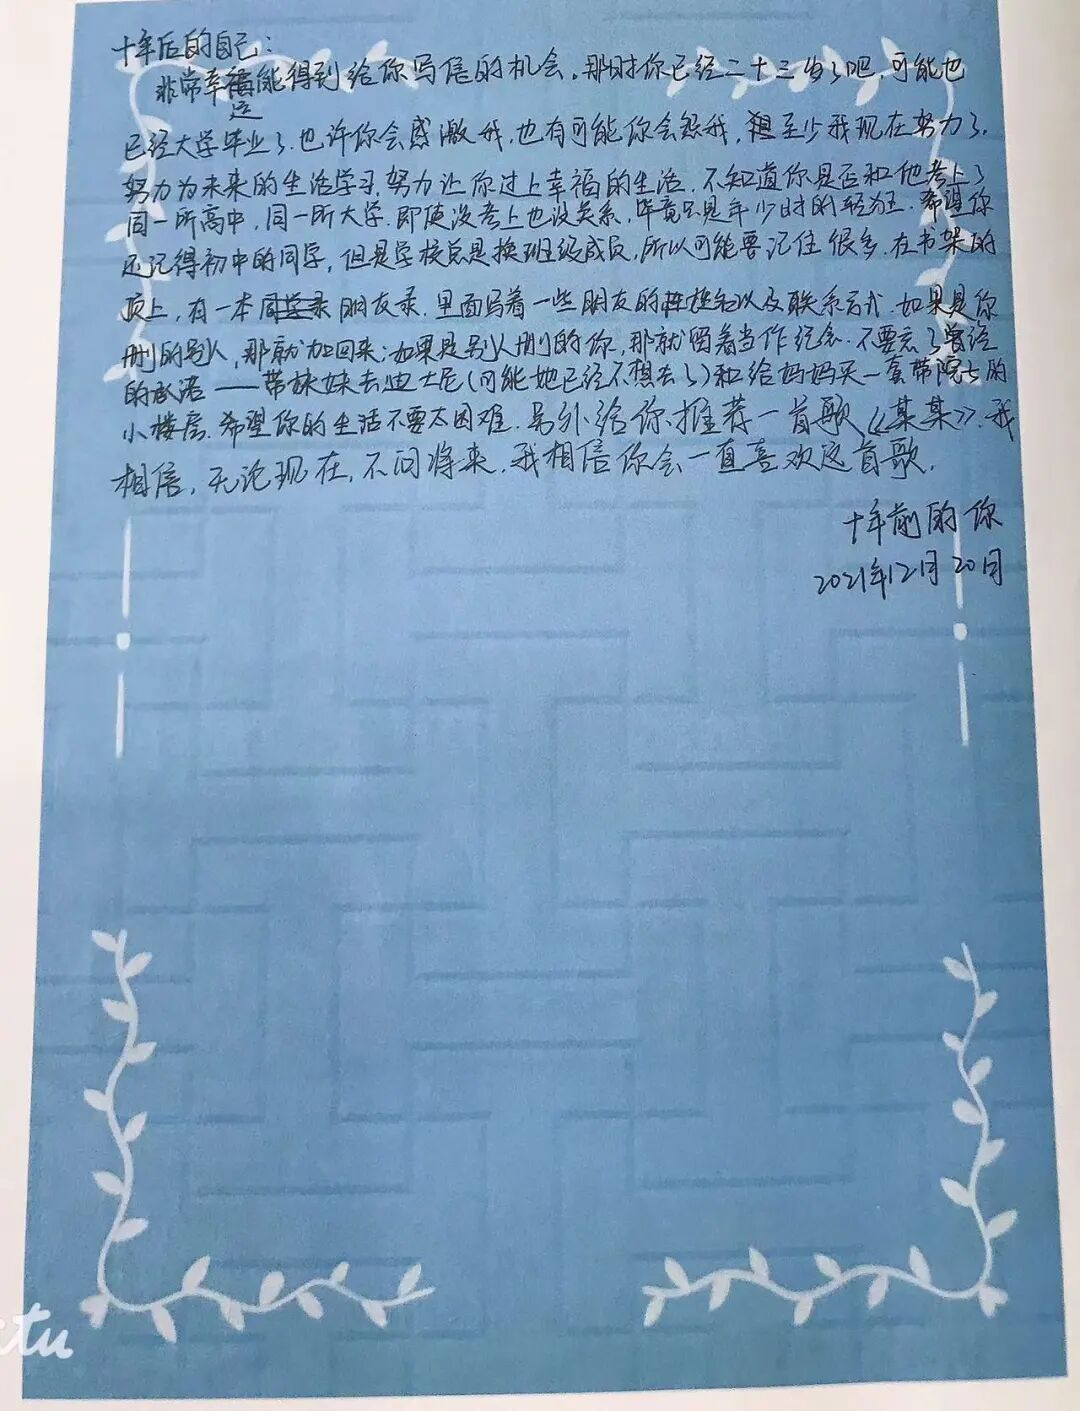 十年后的自己:
非常幸运能得到给你写信的机会。那时你已经二十三岁了吧,可能也
已经大学毕业了.也许你会感激我,也有可能你会怨我,但至少我现在努力了.
努力为未来的生活学习.努力让你过上幸福的生活.不知道你是否和他考上了
同一所高中,同一所大学.即使没考上也没关系,毕竟只是年少时的轻狂.希望你
还记得初中的同学,但是学校总是换班级成员,所以可能要记住很多.在书架的
顶上,有一本朋友录.里面写着一些朋友的姓名以及联系方式.如果是你
删的别人,那就加回来;如果是别人删的你,那就留着当作纪念.不要忘了曾经
的承诺——带妹妹去迪士尼(可能她已经不想去了)和给妈妈买一套带院子的
小楼房.希望你的生活不要太困难.另外给你推荐一首歌《某某》.我
相信,无论现在,不问将来.我相信你会一直喜欢这首歌.
十年前的你
2021年12月20日
itu